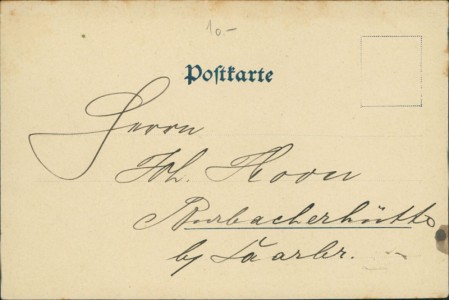 10.-
Postkarte
Herrn
Joh. Hoon
Burbacherhütte
by Saarbr.